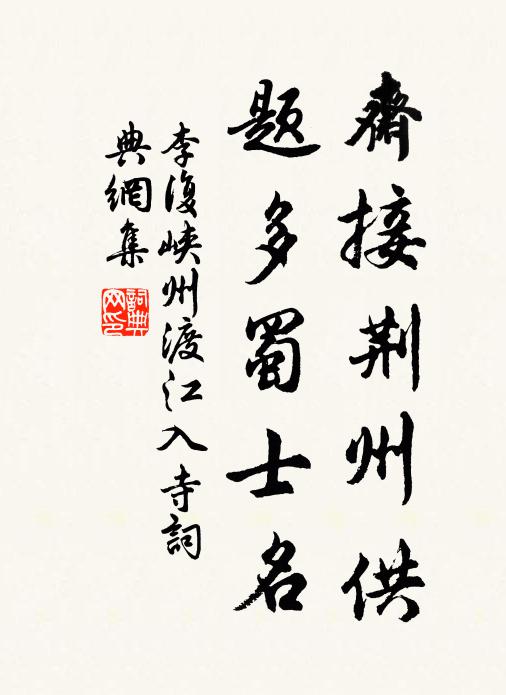 齋接荆州供
題多蜀士名
李復峽州渡江入寺詞
典網集
詞典網印